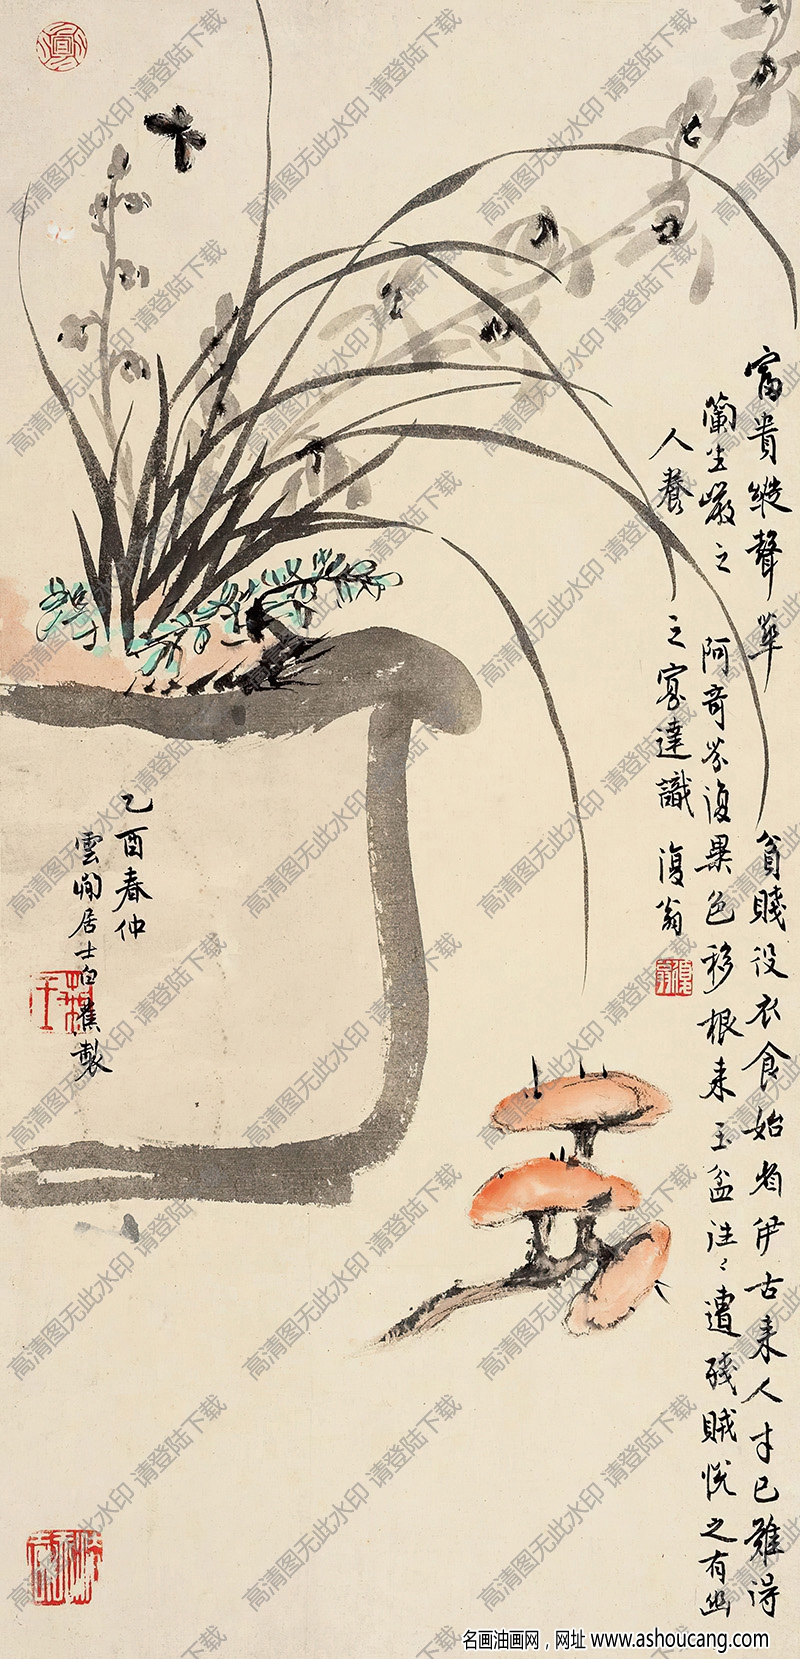 富貴縱聲華
貧賤役衣食始爲伊古来人才已難得
蘭生巖之阿奇芬復異色移根来玉盆往〻遭殘賊悅之有幽
人養之寡達識
復翁
乙酉春仲
雲間居士白蕉製
高清图无此水印 请登陆下载
名画油画网，网址 www.ashoucang.com